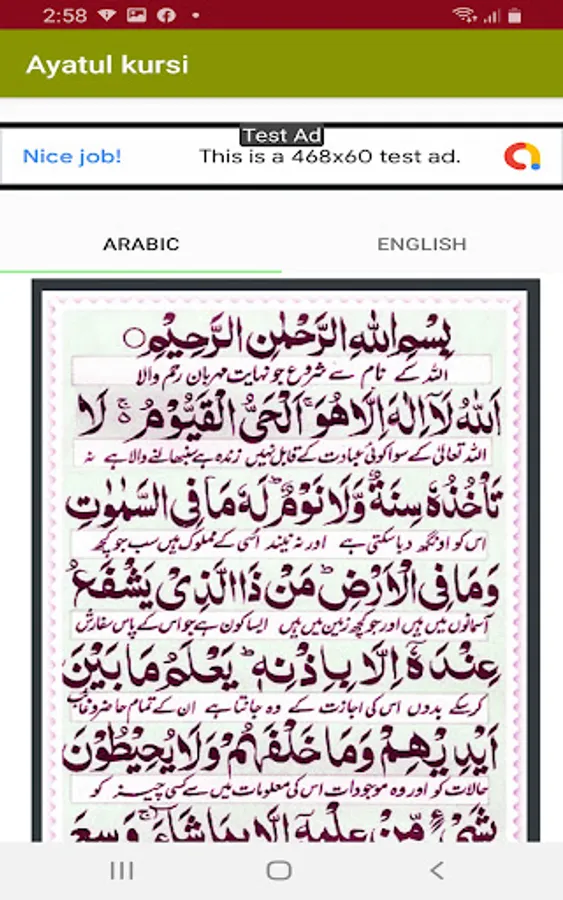 2:58
Ayatul kursi
Test Ad
Nice job!
This is a 468x60 test ad.
ARABIC
ENGLISH
بِسْمِ اللهِ الرَّحْمٰنِ الرَّحِيْمِ
اللہ کے نام سے شروع جو نہایت مہربان رحم والا
اَللهُ لَآ اِلٰهَ اِلَّا هُوَ ۚ اَلْحَيُّ الْقَيُّوْمُ ۚ لَا
اللہ تعالیٰ کے سوا کوئی عبادت کے قابل نہیں زندہ ہے سنبھالنے والا ہے نہ
تَاْخُذُهٗ سِنَةٌ وَّلَا نَوْمٌ ؕ لَهٗ مَا فِي السَّمٰوٰتِ
اس کو اونگھ دبا سکتی ہے اور نہ نیند اسی کے مملوک ہیں سب جو کچھ
وَمَا فِي الْاَرْضِ ؕ مَنْ ذَا الَّذِيْ يَشْفَعُ
آسمانوں میں ہیں اور جو کچھ زمین میں ہیں ایسا کون ہے جو اس کے پاس سفارش
عِنْدَهٗٓ اِلَّا بِاِذْنِهٖ ؕ يَعْلَمُ مَا بَيْنَ
کر سکے بدوں اس کی اجازت کے وہ جانتا ہے ان کے تمام حاضر و غائب
اَيْدِيْهِمْ وَمَا خَلْفَهُمْ وَلَا يُحِيْطُوْنَ
حالات کو اور وہ موجودات اس کی معلومات میں سے کسی چیز کو
بِشَيْءٍ مِّنْ عِلْمِهٖٓ اِلَّا بِمَا شَآءَ ۚ وَسِعَ